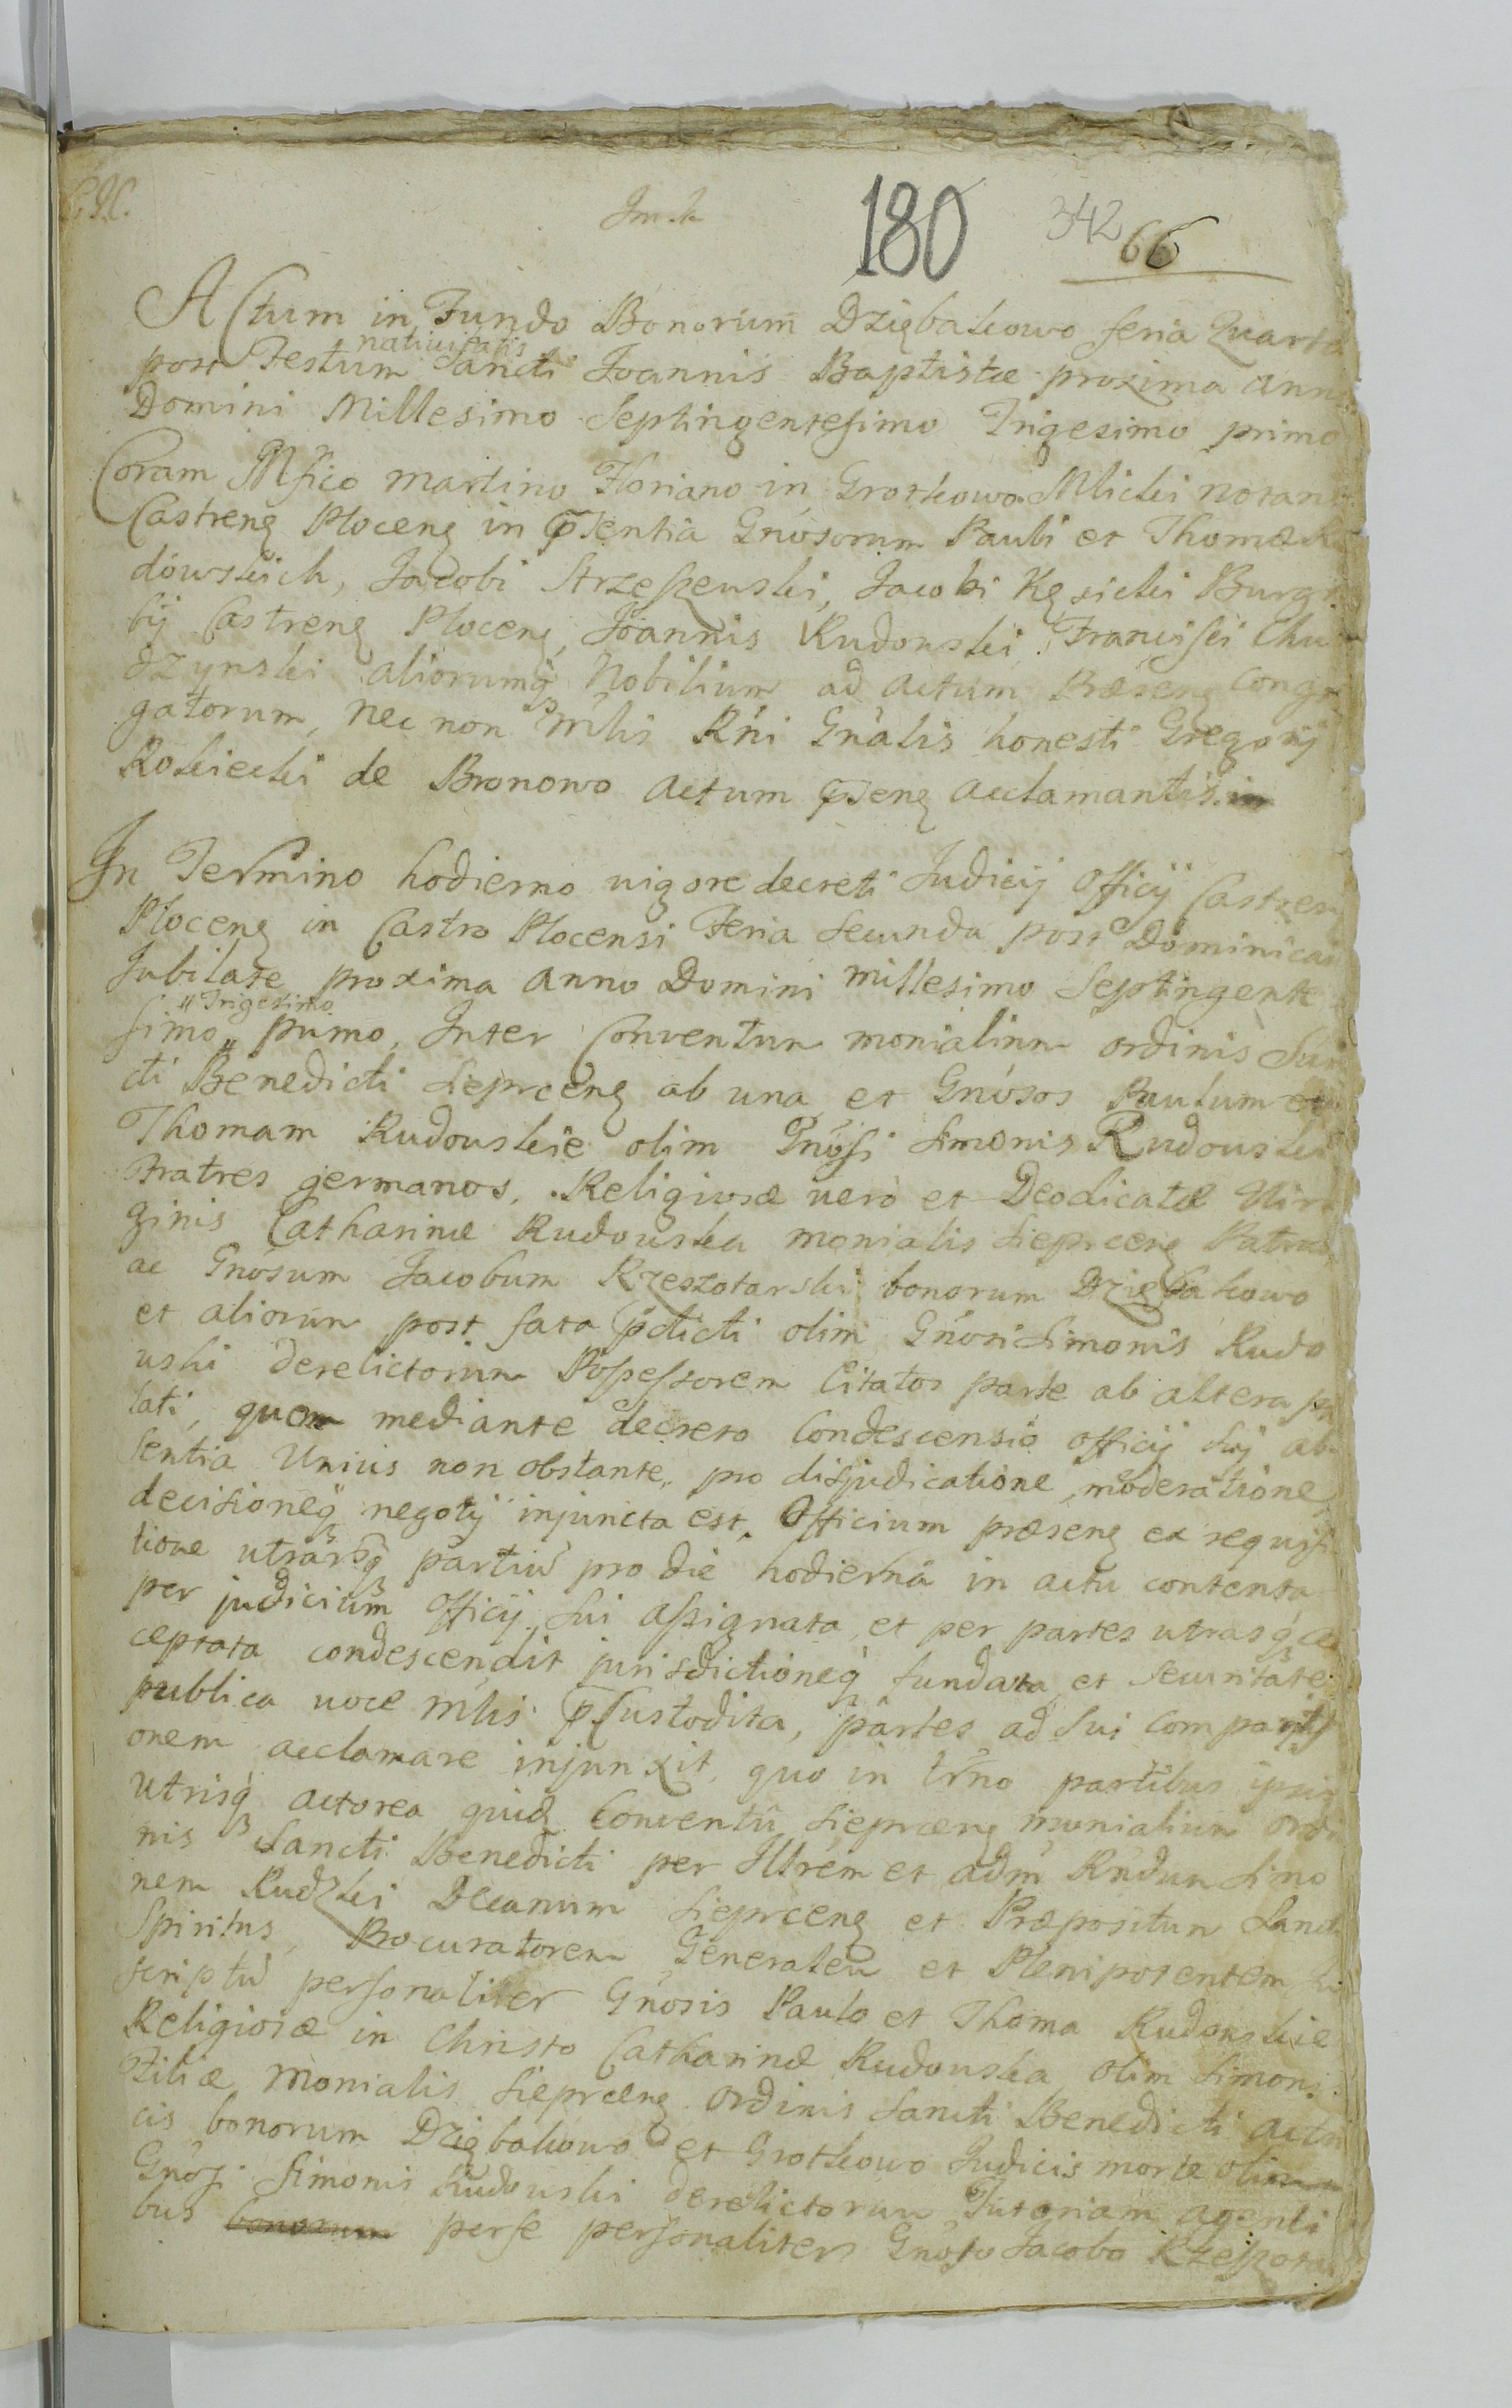 180 342 66
Actum in Fundo Bonorum Dziębakowo feria Quarta
nativitatis
post Festum Sancti Joannis Baptistæ proxima Anno
Domini Millesimo Septingentesimo Trigesimo primo
Coram Mfico Martino Floriano in Grotkowo Mlicki Notario
Castreng Ploceng in pñtentia Gnosorum Pauli et Thomæ Ru
dowskich, Jacobi Strzeszewski, Jacobi Kęsicki Burgra
bij Castreng Ploceng, Joannis Rudowski, Francisci Chu
dzynski aliorumq Nobilium ad actum Præseng Congre
gatorum, nec non Mlis Rni Gnalis honesti Gregorij
Rokicki de Bronowo Actum pñteng acclamantis
In Termino hodierno vigore decreti Judicij Officij Castren
Ploceng in Castro Plocensi Feria Secunda post Dominicam
Jubilate proxima Anno Domini Millesimo Septingente
"Trigesimo
simo " primo, Inter Conventum monialium ordinis San
cti Benedicti Siepreceng ab una et Gnosos Paulum et
Thomam Rudowskie olim Gnosi Simonis Rudowski
Fratres germanos, Religiosæ vero et Deodicatæ Vir
ginis Catharinæ Rudowska monialis Siepreceng Patruos
ac Gnosum Jacobum Rzeszotarski bonorum Dziębakowo
et aliorum post fata pdicti olim Gnosi Simonis Rudo
wski derelictorum Possessorem Citatos parte ab altera pro
lati, quem mediante decreto Condescensio officij Sui ab
sentia Unius non obstante, pro disjudicatione, moderatione
decisioneq negotij injuncta est, Officium præseng ex requisi
tione utrarq partiu pro die hodierna in actu contenta
per judicium Officij Sui assignata, et per partes utrasq ac
ceptata condescendit jurisdictioneq fundata et securitate
publica voce Mlis pCustodita, partes ad Sui Compariti
onem acclamare injunxit, quo in trno partibus ipsis
utrisq actorea quidē Conventu Siepreceng monialium Ordi
nis Sancti Benedicti per Illrem et adm Rndum Simo
nem Rudzki Decanum Siepreceng et Præpositum Sancti
Spiritus, Procuratorem Generalem et Plenipotentem su
scriptu personaliter Gnosis Paulo et Thoma Rudowskie
Religiosæ in Christo Catharinæ Rudowska olim Simonis
Filiæ Monialis Siepreceng ordinis Sancti Benedicti actri
cis bonorum Dziębakowo et Grotkowo Judicis morte olim
Gnosi Simonis Rudowski derelictorum Tutoriam agenti
bus bonorum perse personaliter Gnoso Jacobo Rzeszotar